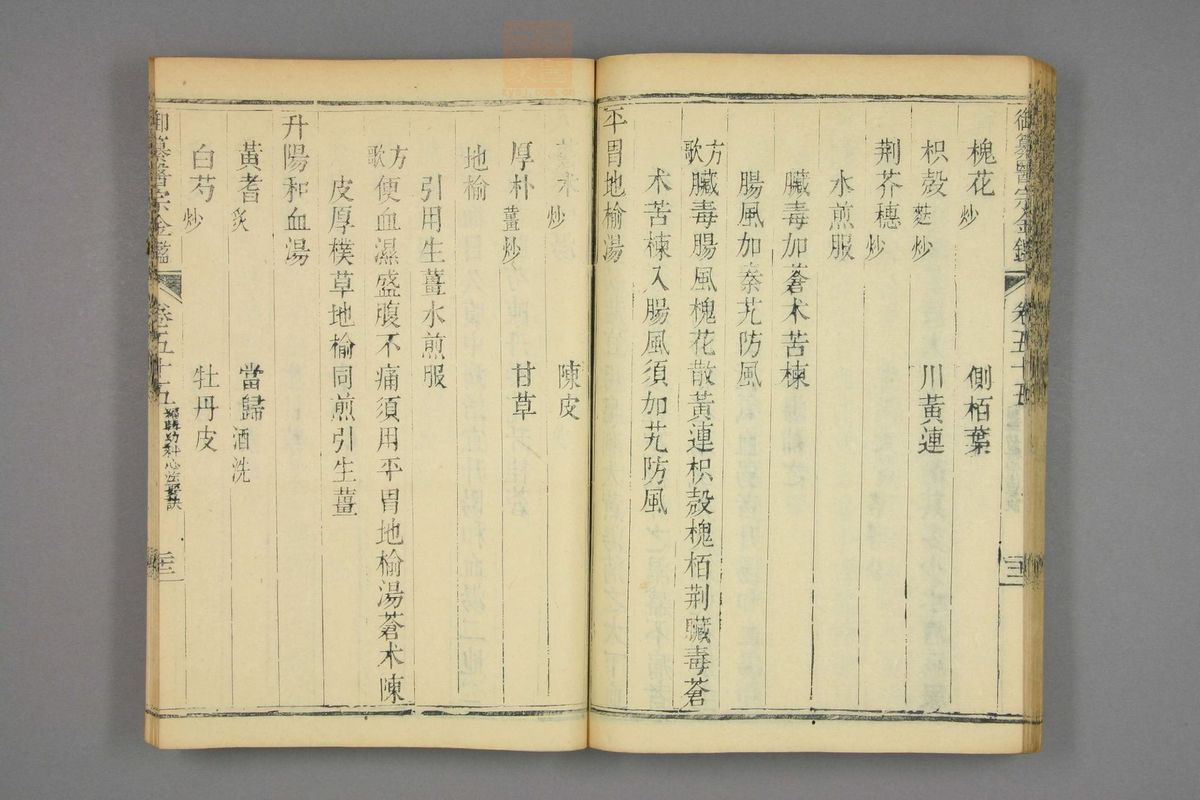 御纂醫宗金鑑 卷五十五 三
槐花炒 側栢葉
枳殻麩炒 川黃連
荆芥穗炒
水煎服
臟毒加蒼术苦楝
腸風加秦艽防風
方歌 臟毒腸風槐花散黃連枳殻槐栢荆臟毒蒼
术苦楝入腸風須加艽防風
平胃地榆湯
蒼术炒 陳皮
厚朴薑炒 甘草
地榆
引用生薑水煎服
方歌 便血濕盛腹不痛須用平胃地榆湯蒼术陳
皮厚樸草地榆同煎引生薑
升陽和血湯
黃耆炙 當歸酒洗
白芍炒 牡丹皮
御纂醫宗金鑑 卷五十五 編輯幼科心法要訣